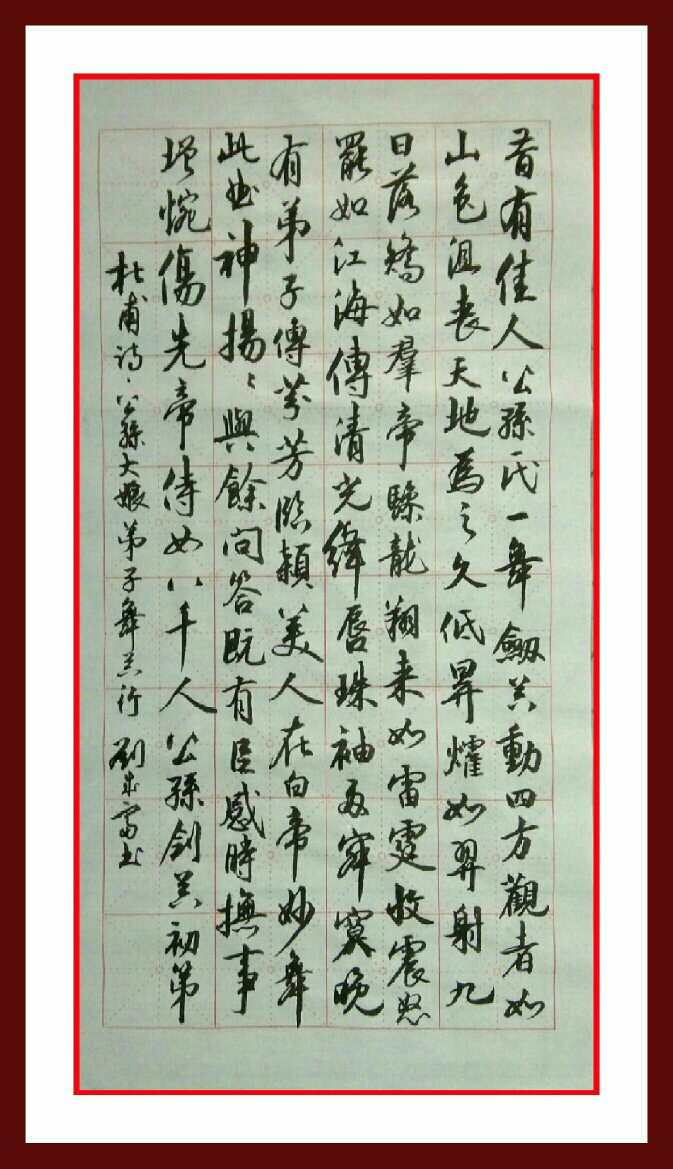 昔有佳人公孫氏一舞劔器動四方觀者如
山色沮喪天地為之久低昇㸌如羿射九
日落矯如羣帝驂龍翔来如雷霆收震怒
罷如江海傳清光絳唇珠袖两寂寞晚
有弟子傳芬芳臨穎美人在白帝妙舞
此曲神揚〻與餘问答既有臣感時撫事
增惋傷先帝侍女八千人公孫剑器初第
杜甫诗·公孫大娘弟子舞器行 劉 富书